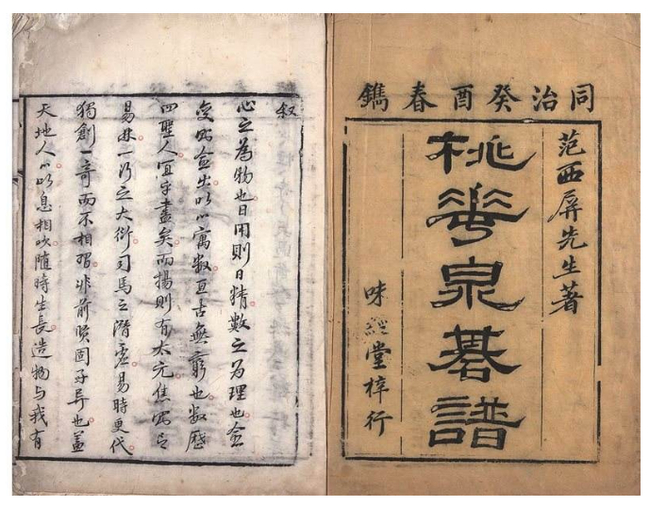 同治癸酉春鐫
范西屏先生著
桃華泉棊譜
味經堂梓行
叙
心之為物也日用則日精數之為理也愈
變愈出以心寓數亘古無窮也數歷
四聖人宜乎盡矣而揚則有太元焦
易林一行之大衍司馬之潛虛易時更代
獨創一奇而不相習非前賢固異也蓋
天地人心以息相吹随時生長造物与我有